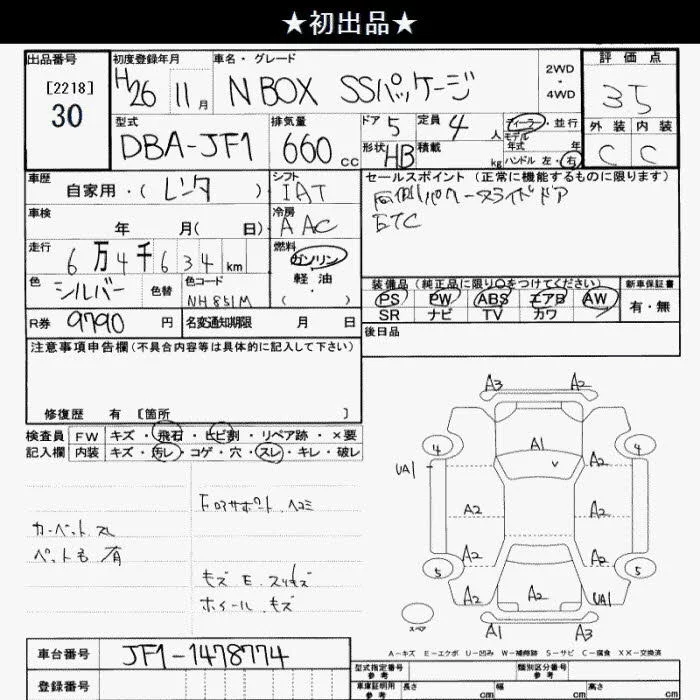 ★初出品★
出品番号
[2218]
30
初度登録年月
H26 11月
車名・グレード
N BOX SSパッケージ
2WD
・
4WD
評価点
35
外装 内装
C C
型式
DBA-JF1
排気量
660 cc
ドア 5
定員 4 人
形状 HB
積載 kg
ディーラー・並行
モデル
年式 年
ハンドル 左・右
車歴
自家用・( レンタ )
シフト
IAT
セールスポイント (正常に機能するものに限ります)
両側パワースライドドア
ETC
車検
年 月( 日)
冷房
AAC
走行
6万4千634km
燃料
ガソリン
軽油
( ・ )
色
シルバー
色替
色コード
NH851M
装備品 (純正品に限り○をつけてください)
PS PW ABS エアB AW
SR ナビ TV カワ
新車保証書
有・無
R券 9790 円
名変通知期限 月 日
後日品
注意事項申告欄(不具合内容等は具体的に記入して下さい)
修復歴 有 [箇所 ]
検査員
記入欄
FW キズ・飛石・ヒビ割・リペア跡・×要
内装 キズ・汚レ・コゲ・穴・スレ・キレ・破レ
カーペット スレ
ペット毛 有
Fロアサポート ヘコミ
キズ E スリキズ
ホイール キズ
A3 A2
A1
4 4
UA1 A2
A2 A2
A2 A2
5 5
A2 UA1
スペア
A1 A3
A-キズ E-エクボ U-凹み W-補修跡 S-サビ C-腐食 XX-交換済
車台番号 JF1-1478774
登録番号
型式指定番号
参考
類別区分番号
参考
車庫証明用
参考
長さ cm
幅 cm
高さ cm